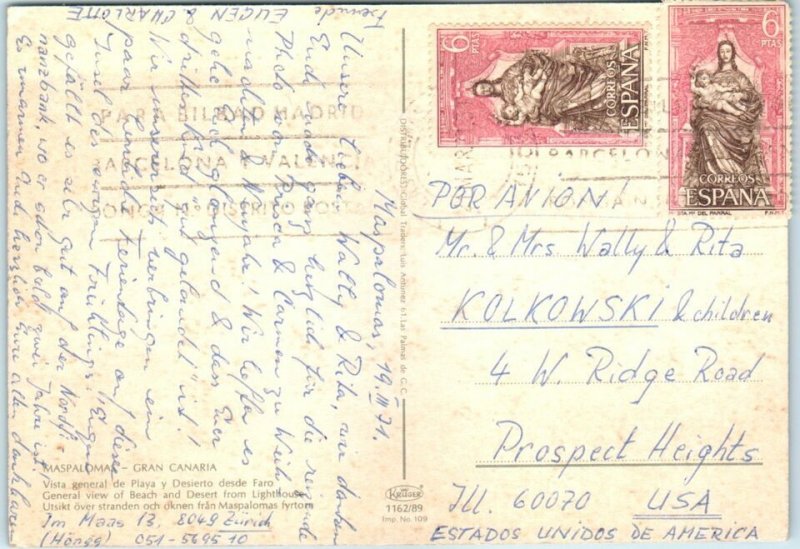 Maspalomas, 19.III.71.
Unsere lieben Wally & Rita, wir danken
Euch ganz herzlich für die reizende
Photo von Prisca & Carmen zu Weih-
nachten & Neujahr! Wir hoffen es
gehe Euch glänzend & dass Euer
drittes Kind gut gelandet ist!
Wir unsererseits verbringen ein
paar herrliche Ferientage auf dieser
Insel des ewigen Frühlings. Eugen
gefällt es sehr gut auf der Nordfi-
nanzbank, wo er schon bald zwei Jahre ist.
Es umarmen Euch herzlich Eure alten dankbaren
Freunde EUGEN & CHARLOTTE
Im Maas 13, 8049 Zürich
(Höngg) 051-569510
MASPALOMAS - GRAN CANARIA
Vista general de Playa y Desierto desde Faro
General view of Beach and Desert from Lighthouse
Utsikt över stranden och öknen från Maspalomas fyrtorn
DISTRIBUIDORES: Global Traders, Luis Antunez 61 Las Palmas de G.C.
KRÜGER
1162/89
Imp. No. 109
PARA BILBAO MADRID
BARCELONA Y VALENCIA
PONGA Nº DISTRITO POSTAL
6
PTAS
CORREOS
ESPAÑA
6
PTAS
CORREOS
ESPAÑA
STA. Mª DEL PARRAL
F.N.M.T.
POR AVION!
Mr. & Mrs Wally & Rita
KOLKOWSKI & children
4 W. Ridge Road
Prospect Heights
Ill. 60070 USA
ESTADOS UNIDOS DE AMERICA